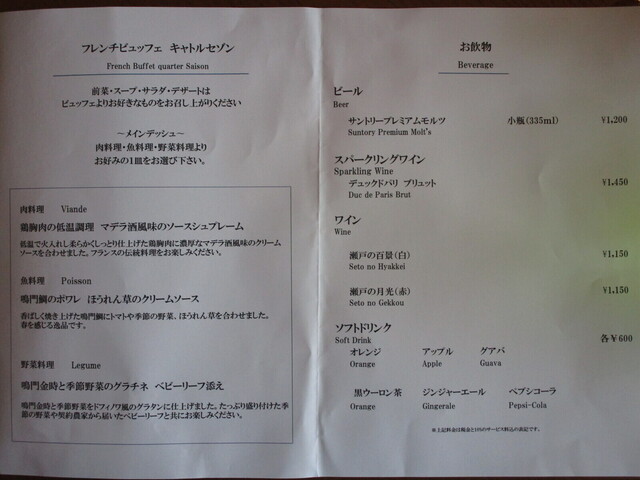 フレンチビュッフェ キャトルセゾン
French Buffet quarter Saison
前菜・スープ・サラダ・デザートは
ビュッフェよりお好きなものをお召し上がりください
～メインデッシュ～
肉料理・魚料理・野菜料理より
お好みの1皿をお選び下さい。
肉料理 Viande
鶏胸肉の低温調理 マデラ酒風味のソースシュプレーム
低温で火入れし柔らかくしっとり仕上げた鶏胸肉に濃厚なマデラ酒風味のクリーム
ソースを合わせました。フランスの伝統料理をお楽しみください。
魚料理 Poisson
鳴門鯛のポワレ ほうれん草のクリームソース
香ばしく焼き上げた鳴門鯛にトマトや季節の野菜、ほうれん草を合わせました。
春を感じる逸品です。
野菜料理 Legume
鳴門金時と季節野菜のグラチネ ベビーリーフ添え
鳴門金時と季節野菜をドフィノワ風のグラタンに仕上げました。たっぷり盛り付けた季
節の野菜や契約農家から届いたベビーリーフと共にお楽しみください。
お飲物
Beverage
ビール
Beer
サントリープレミアムモルツ 小瓶(335ml) ¥1,200
Suntory Premium Molt's
スパークリングワイン
Sparkling Wine
デュックドパリ ブリュット ¥1,450
Duc de Paris Brut
ワイン
Wine
瀬戸の百景(白) ¥1,150
Seto no Hyakkei
瀬戸の月光(赤) ¥1,150
Seto no Gekkou
ソフトドリンク 各¥600
Soft Drink
オレンジ アップル グアバ
Orange Apple Guava
黒ウーロン茶 ジンジャーエール ペプシコーラ
Orange Gingerale Pepsi-Cola
※上記料金は税金と10%のサービス料込の表記です。